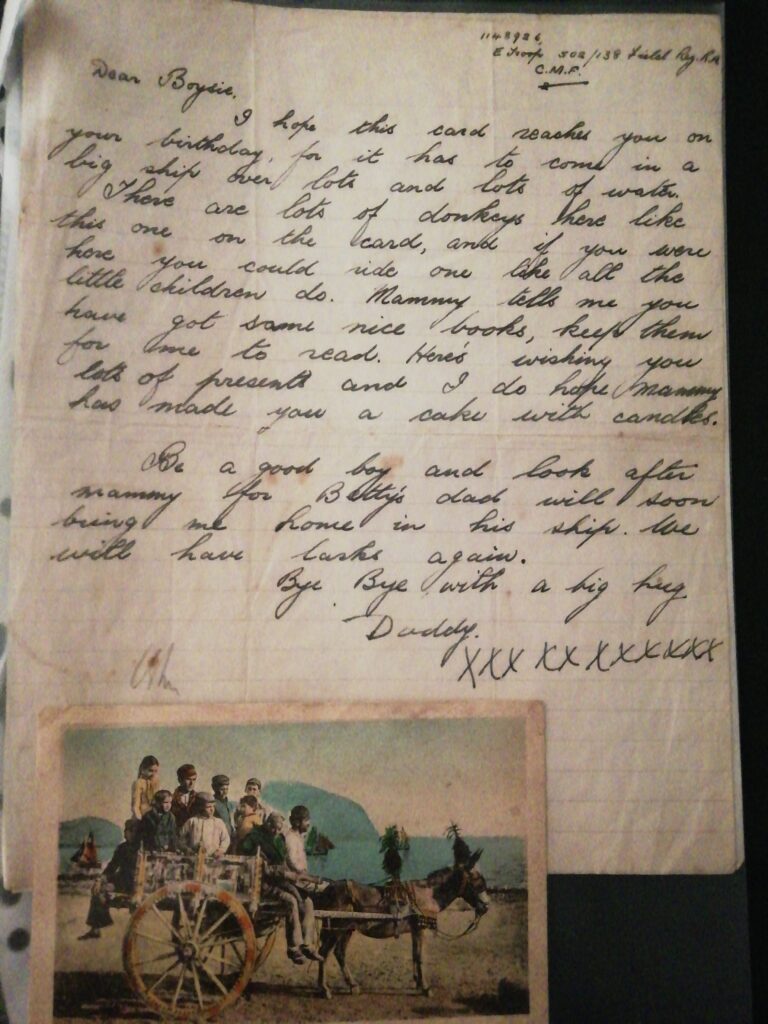 1148926,
E Troop 502/138 Field Reg. R.A
C.M.F.
Dear Boysie,
I hope this card reaches you on
your birthday, for it has to come in a
big ship over lots and lots of water.
There are lots of donkeys here like
this one on the card, and if you were
here you could ride one like all the
little children do. Mammy tells me you
have got some nice books, keep them
for me to read. Here's wishing you
lots of presents and I do hope Mammy
has made you a cake with candles.
Be a good boy and look after
mammy for Betty's dad will soon
bring me home in his ship. We
will have larks again.
Bye Bye with a big hug
Daddy.
XXX XX XXXXXXX